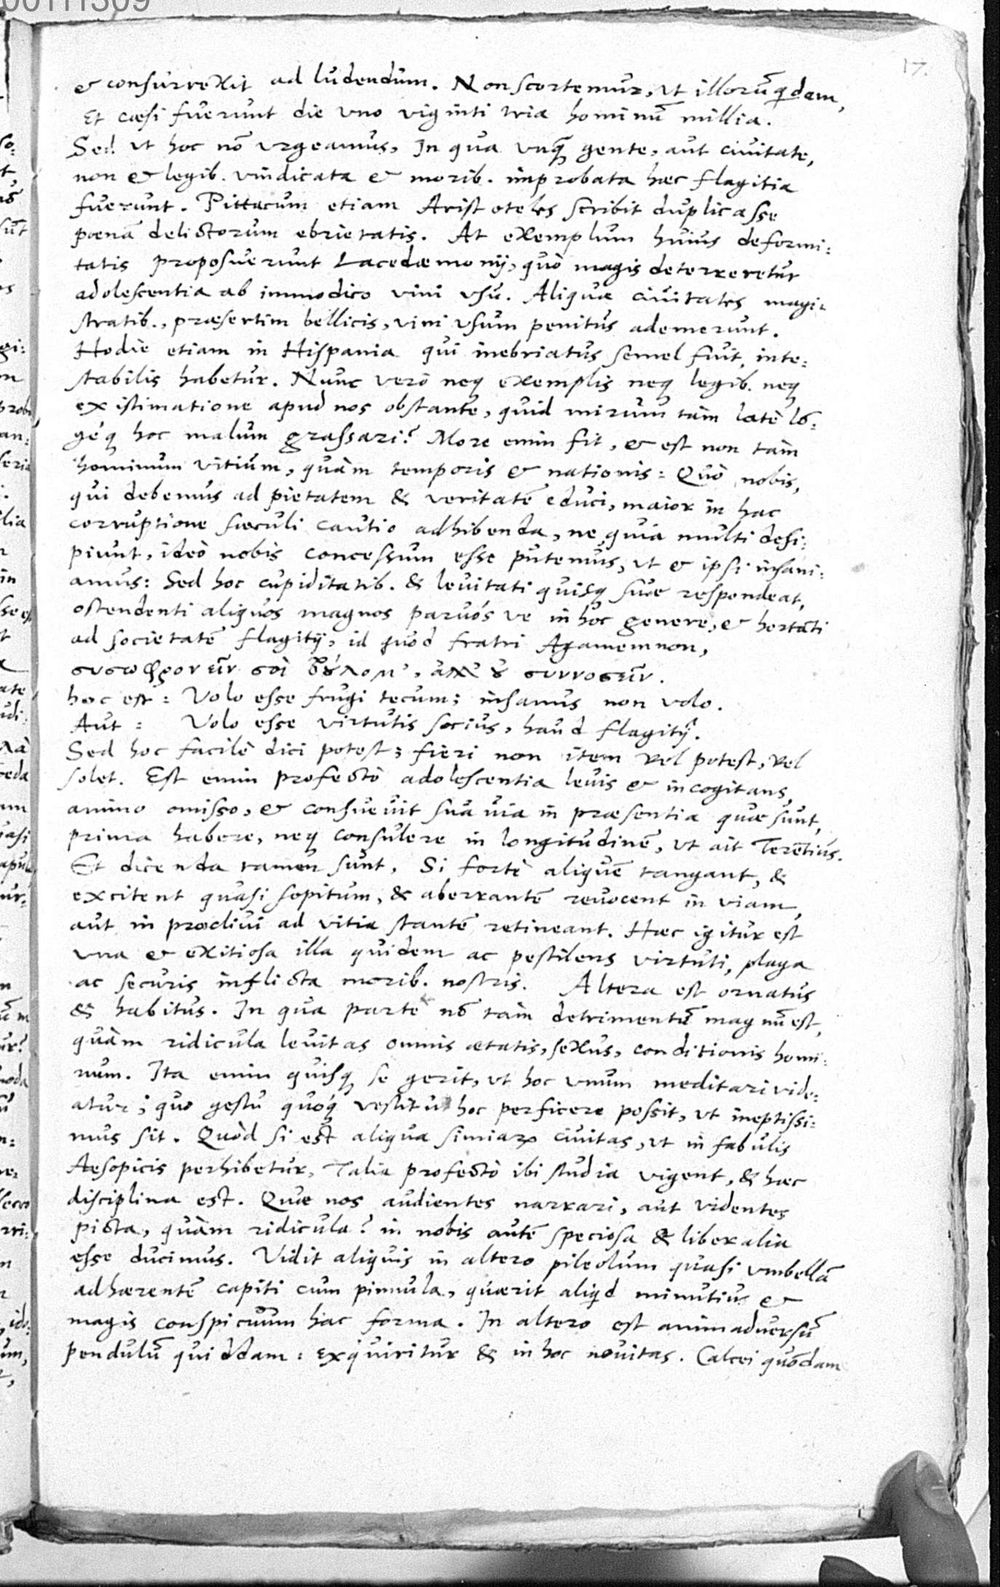 00111309
17.
& consurrexit ad ludendum. Non scortemur, ut illorũ quidem,
Et cæsi fuerunt die uno viginti tria hominũ millia.
Sed ut hoc nõ urgeamus, In qua unq̃ gente, aut civitate,
non & legib. vindicata & morib. improbata hæc flagitia
fuerunt. Pittacum etiam Aristoteles scribit duplicasse
pœnã delictorum ebrietatis. At exemplum huius deformi-
tatis proposuerunt Lacedæmonij, quò magis deterreretur
adolescentia ab immodico vini usu. Aliquæ civitates magi-
stratib., præsertim bellicis, vini usum penitus ademerunt.
Hodie etiam in Hispania qui inebriatus semel fuit, inte-
stabilis habetur. Nunc verò neq exemplis neq legib. neq
existimatione apud nos obstante, quid mirum tam latè lõ-
géq hoc malum grassari? More enim fit, & est non tam
hominum vitium, quàm temporis & nationis: Quò nobis,
qui debemus ad pietatem & veritatẽ educi, maior in hac
corruptione sæculi cautio adhibenda, ne, quia multi desi-
piunt, ideò nobis concessum esse putemus, ut & ipsi insani-
amus: Sed hoc cupiditatib. & levitati quisq suæ respondeat,
ostendenti aliquos magnos parvos ve in hoc genere, & hortãti
ad societatẽ flagitij, id quod fratri Agamemnon,
συσωφρονεῖν σοὶ βούλομ', ἀλλ' οὐ συννοσεῖν.
hoc est: Volo esse frugi tecum; insanus non volo.
Aut: Volo esse virtutis socius, haud flagitij.
Sed hoc facilè dici potest; fieri non item vel potest, vel
solet. Est enim profectò adolescentia levis & incogitans,
animo omisso, & consuevit sua via in præsentia quæ sunt,
prima habere, neq consulere in longitudinẽ, ut ait Terẽtius.
Et dicenda tamen sunt, Si fortè aliquẽ tangant, &
excitent quasi sopitum, & aberrantẽ revocent in viam,
aut in proclivi ad vitia stantẽ retineant. Hæc igitur est
una & exitiosa illa quidem ac pestilens virtuti, plaga
ac securis inflicta morib. nostris. Altera est ornatus
& habitus. In qua parte nõ tam detrimentũ magnũ est,
quàm ridicula levitas omnis ætatis, sexus, conditionis homi-
num. Ita enim quisq se gerit, ut hoc unum meditari vide-
atur; quo gestu quoq vestitu hoc perficere possit, ut ineptissi-
mus sit. Quòd si est aliqua simiarꝝ civitas, ut in fabulis
Aesopicis perhibetur, Talia profectò ibi studia vigent, & hæc
disciplina est. Quæ nos audientes narrari, aut videntes
picta, quàm ridicula? in nobis autẽ speciosa & liberalia
esse ducimus. Vidit aliquis in altero pileolum quasi umbellã
adhærentẽ capiti cum pinnula, quærit aliqd minutius &
magis conspicuum hac forma. In altero est animadversũ
pendulũ quiddam: exquiritur & in hoc novitas. Calcei quõdam